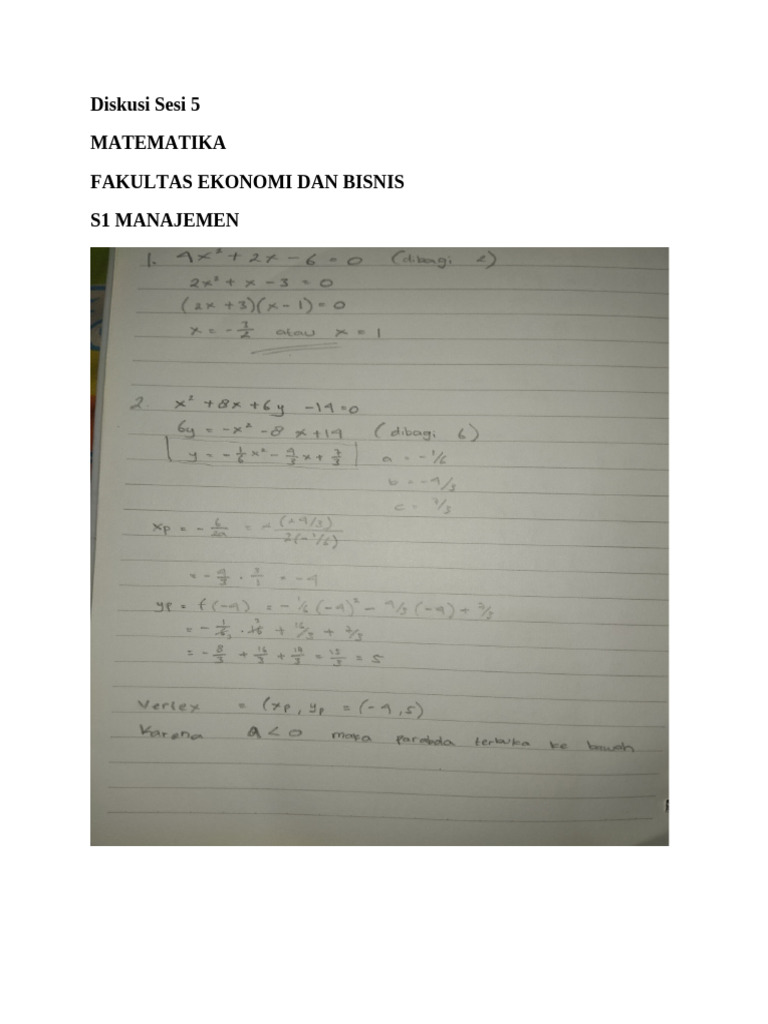 Diskusi Sesi 5
MATEMATIKA
FAKULTAS EKONOMI DAN BISNIS
S1 MANAJEMEN
1. 4x² + 2x - 6 = 0 (dibagi 2)
2x² + x - 3 = 0
(2x + 3)(x - 1) = 0
x = - 3/2 atau x = 1
2. x² + 8x + 6y - 14 = 0
6y = -x² - 8x + 14 (dibagi 6)
y = - 1/6 x² - 4/3 x + 7/3 a = -1/6
b = -4/3
c = 7/3
xp = - b/2a = - (-4/3) / 2(-1/6)
= - 4/3 · 3/1 = -4
yp = f(-4) = -1/6 (-4)² - 4/3 (-4) + 7/3
= - 1/6 · 16 + 16/3 + 7/3
= - 8/3 + 16/3 + 14/3 = 15/3 = 5
Vertex = (xp, yp = (-4, 5)
Karena a < 0 maka parabola terbuka ke bawah